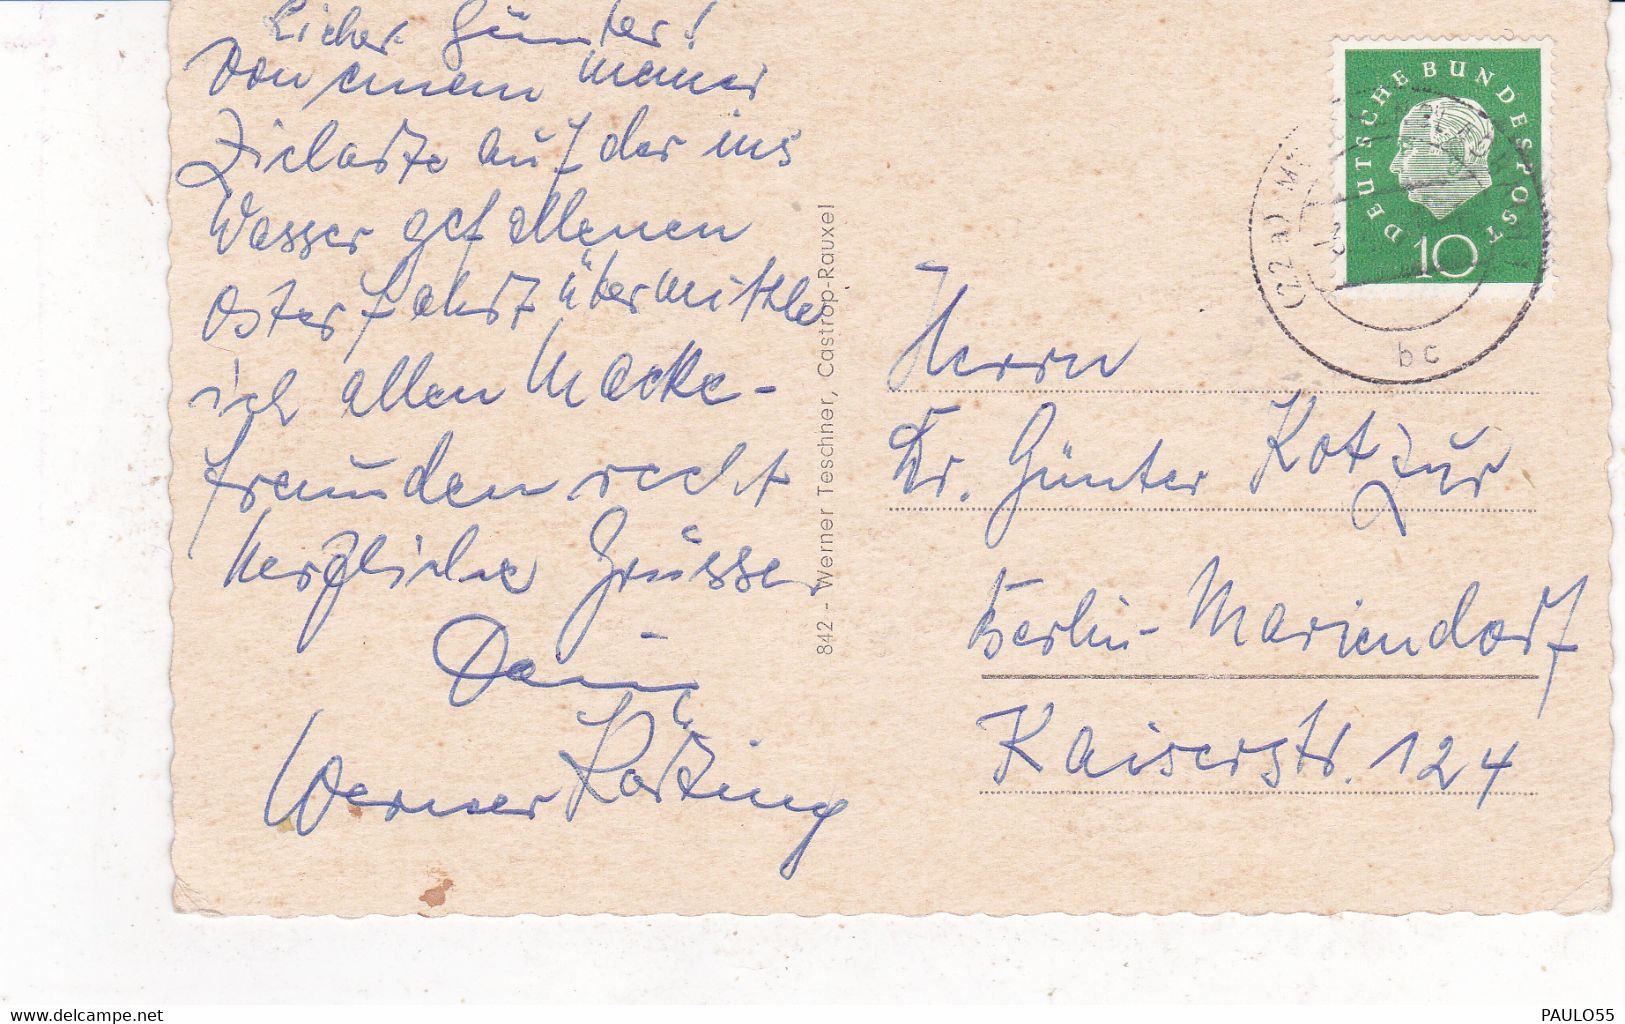 Lieber Günter!
Von einem meiner
Zielorte auf der ins
Wasser gefallenen
Osterfahrt übermittle
ich allen Macke-
freunden recht
herzliche Grüsse
Dein
Werner Körting
842 - Werner Teschner, Castrop-Rauxel
DEUTSCHE BUNDESPOST
10
(22a)
bc
Herrn
Dr. Günter Kotzur
Berlin-Mariendorf
Kaiserstr. 124
delcampe.net
PAULO55